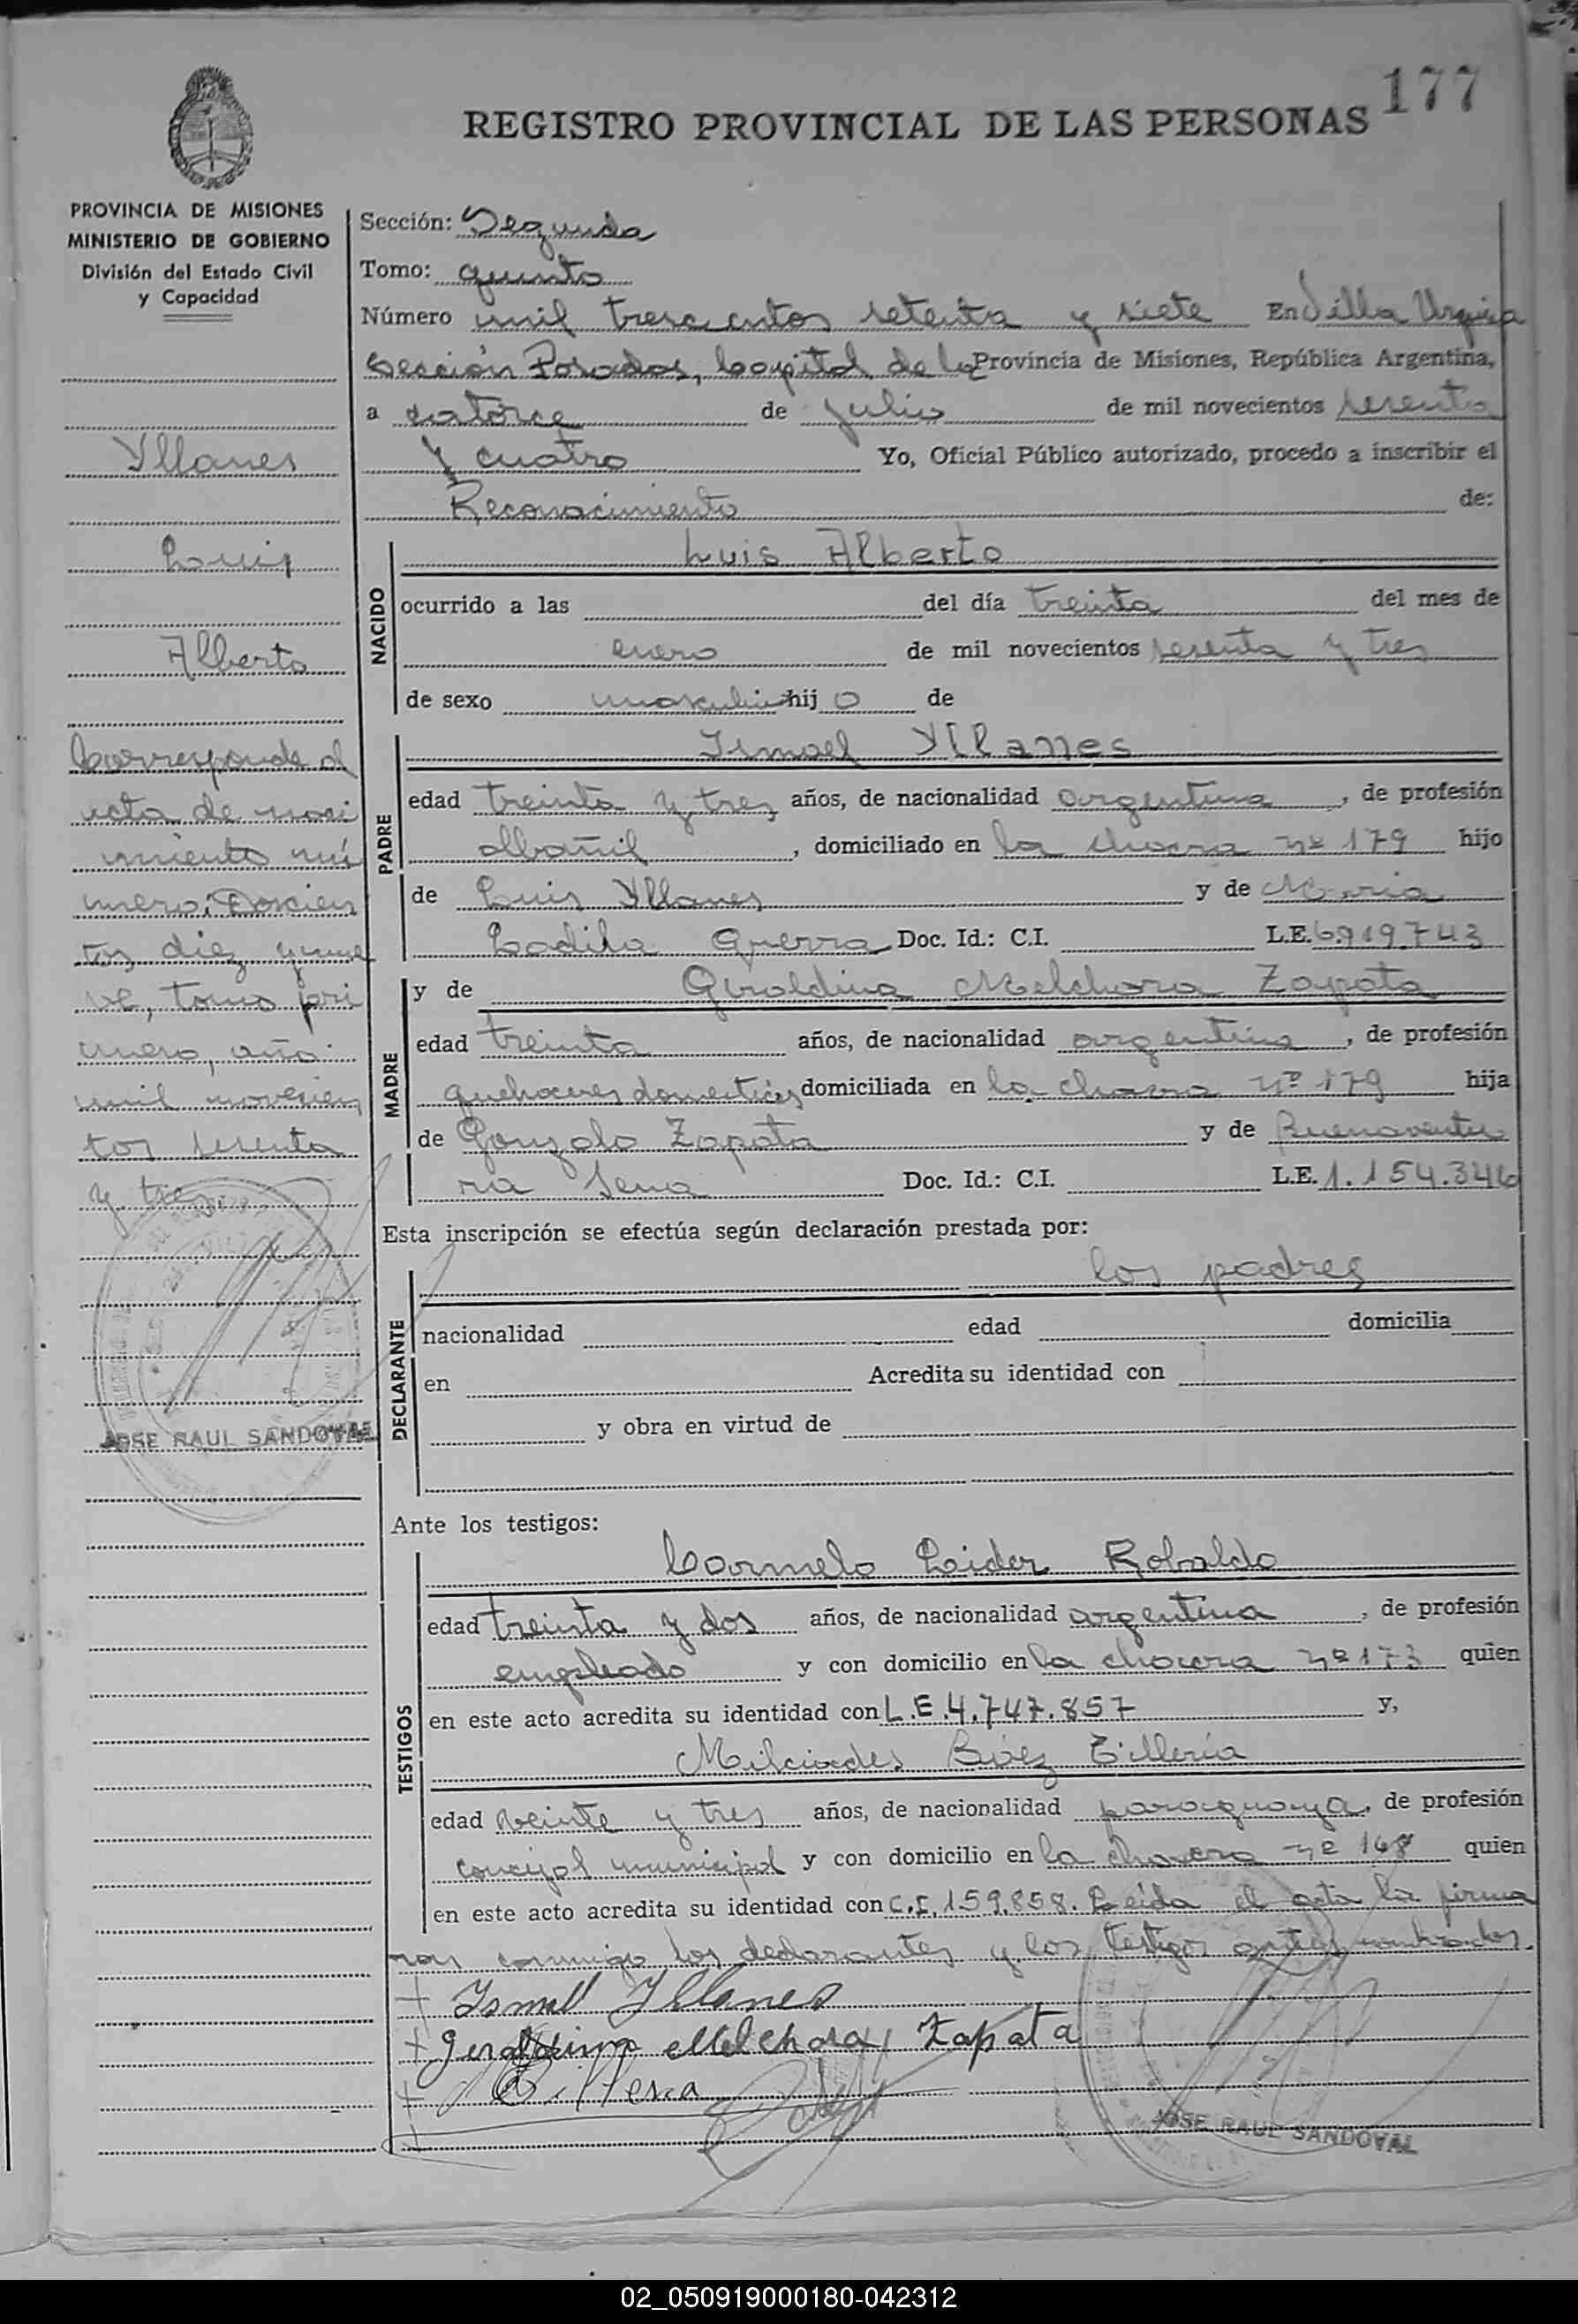 177
REGISTRO PROVINCIAL DE LAS PERSONAS
PROVINCIA DE MISIONES
MINISTERIO DE GOBIERNO
División del Estado Civil
y Capacidad
Yllanes
Luis
Alberto
Corresponde al
acta de naci
miento nú
mero: Doscien
tos diez y nue
ve, tomo pri
mero, año
mil novecien
tos sesenta
y tres
JOSE RAUL SANDOVAL
Sección: Segunda
Tomo: quinto
Número mil trescientos setenta y siete En Villa Urquiza
Sección Posadas, Capital de la Provincia de Misiones, República Argentina,
a catorce de julio de mil novecientos sesenta
y cuatro Yo, Oficial Público autorizado, procedo a inscribir el
Reconocimiento de:
NACIDO
Luis Alberto
ocurrido a las del día treinta del mes de
enero de mil novecientos sesenta y tres
de sexo masculino hij o de
PADRE
Ismael Yllanes
edad treinta y tres años, de nacionalidad argentina, de profesión
albañil, domiciliado en la chacra nº 179 hijo
de Luis Yllanes y de María
Ladila Guerra Doc. Id.: C.I. L.E. 6.919.743
MADRE
y de Giraldina Melchora Zapata
edad treinta años, de nacionalidad argentina, de profesión
quehaceres domésticos domiciliada en la chacra nº 179 hija
de Gonzalo Zapata y de Buenaventu
ra Sena Doc. Id.: C.I. L.E. 1.154.346
Esta inscripción se efectúa según declaración prestada por:
DECLARANTE
los padres
nacionalidad edad domicilia
en Acredita su identidad con
y obra en virtud de
Ante los testigos:
TESTIGOS
Carmelo Leider Robaldo
edad treinta y dos años, de nacionalidad argentina, de profesión
empleado y con domicilio en la chacra nº 173 quien
en este acto acredita su identidad con L.E. 4.747.857 y,
Milciades Báez Tillería
edad veinte y tres años, de nacionalidad paraguaya, de profesión
concejal municipal y con domicilio en la chacra nº 168 quien
en este acto acredita su identidad con C.I. 159.858. Leída el acta la firma
ron conmigo los declarantes y los testigos antes nombrados.
Ismael Yllanes
Geraldina Melchora Zapata
JOSE RAUL SANDOVAL
02_050919000180-042312